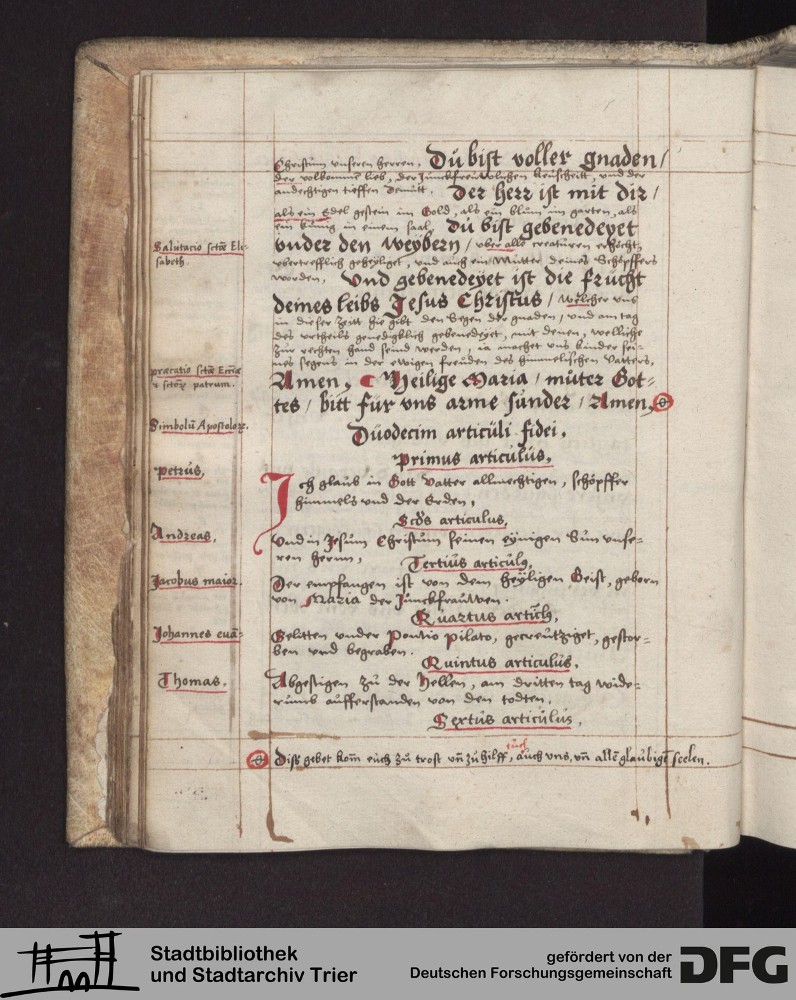 Christum vnseren herren. Dů bist voller gnaden /
der volkommen lieb, der Junckfreuwlichen keuscheitt, vnd der
andechtigen tieffen demutt. Der herr ist mit dir /
als ein Edel gestein im Gold, als ein blům im garten, als
ein künig in einem saal. Dů bist gebenedeyet
Salutacio sctæ Eli-
sabeth.
vnder den weybern / vber alle creatüren erhöcht,
vbertrefflich geheyliget, vnd auch ein Mütter deines Schöpffers
worden, vnd gebenedeyet ist die frücht
deines leibs Jesus Christus / welcher vns
in dieser Zeitt hie gibt den Segen der gnaden / vnd am tag
des vrtheils genedigklich gebenedeyet, mit denen, welliche
zur rechten hand seind werden, ia machet vns kinder sei-
nes segens in der ewigen freuden des himmelischen Vatters,
præcatio sctæ Eccīæ
et sctorum patrum.
Amen, Heilige Maria / můter Got-
tes / bitt für vns arme sünder / Amen,
Simbolū Apostolorꝝ.
Důodecim articůli fidei.
Primus articulus.
Petrus,
Ich glaub in Gott Vatter allmechtigen, schöpffer
himmels vnd der Erden,
Scds articulus,
Andreas,
Vnd in Jesum Christum seinen eynigen Sun vnse-
ren herrn,
Tertius articulꝰ,
Jacobus maior.
Der empfangen ist von dem heyligen Geist, geborn
von Maria der Junckfrauwen.
Quartus articlꝰ,
Johannes euā-
Gelitten vnder Pontio Pilato, gecreutziget, gestor-
ben vnd begraben.
Quintus articulus,
Thomas,
Abgestigen zů der Hellen, am dritten tag wide-
rumb aufferstanden von den todten,
Sextus articůlus,
Diß gebet kom̄ euch zů trost vn̄ zů hilff, auch vns, vn̄ allē glaubigē seelen.
Stadtbibliothek
und Stadtarchiv Trier
gefördert von der
Deutschen Forschungsgemeinschaft
DFG